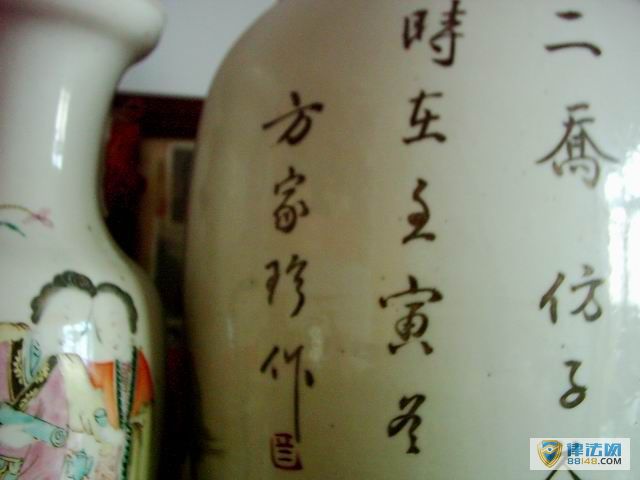 二喬仿子
時在壬寅冬
方家珍作
律法网
88148.COM